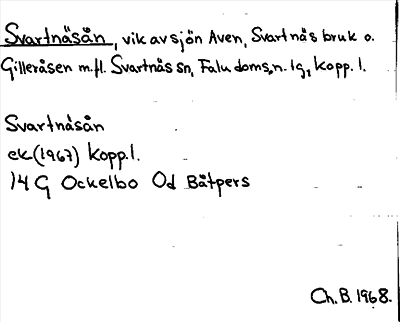 Svartnäsån, vik av sjön Aven, Svartnäs bruk o.
Gilleråsen m.fl. Svartnäs sn, Falu doms.n. lg, Kopp. l.
Svartnäsån
ek (1967) Kopp.l.
14 G Ockelbo Od Båtpers
Ch. B. 1968.